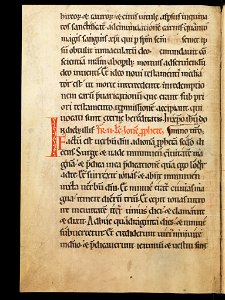 hircorum & taurorum & cinis uitule aspersus inquina
tos sanctificat ad emundationem carnis quanto
magis sanguis xpi qui p spm scm semet ip
sum obtulit inmaculatum deo emundabit con
scientiam nram ab operib; mortuis ad seruiendu
deo uiuenti Et ideo noui testamenti media
tor est ut morte intercedente in redemptio
nem earu preuaricationum que erant sub pri
ori testamento repromissionem accipiant qui
uocati sunt eterne hereditatis In xpo ihu do
Jone prophete
Factum est uerbum dni ad ionam prophetam secdo di
cens Surge & uade in niniuen ciuitate ma
gna & predica in ea predicatione qua ego loqr
ad te Et surrexit ionas & abiit in niniuen
iuxta uerbu dni Et niniue erat ciuitas ma
gna itinere dierum trium Et cepit ionas intro
ire in ciuitate itinere unius diei & clamauit
& dixit Adhuc quadraginta dies & niniue
subuertetur Et crediderunt uiri niniuite in
dno & predicauerunt ieiuniu & uestiti sunt